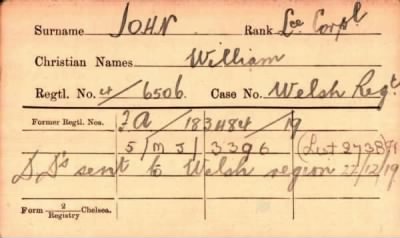 Surname JOHN Rank Lce Corpl
Christian Names William
Regtl. No. 4/6506 Case No. Welsh Regt
Former Regtl. Nos. 7A/183484/19
5/MJ/3396 (List 2738)
D.Ds sent to Welsh region 22/12/19
Form 2/Registry Chelsea.